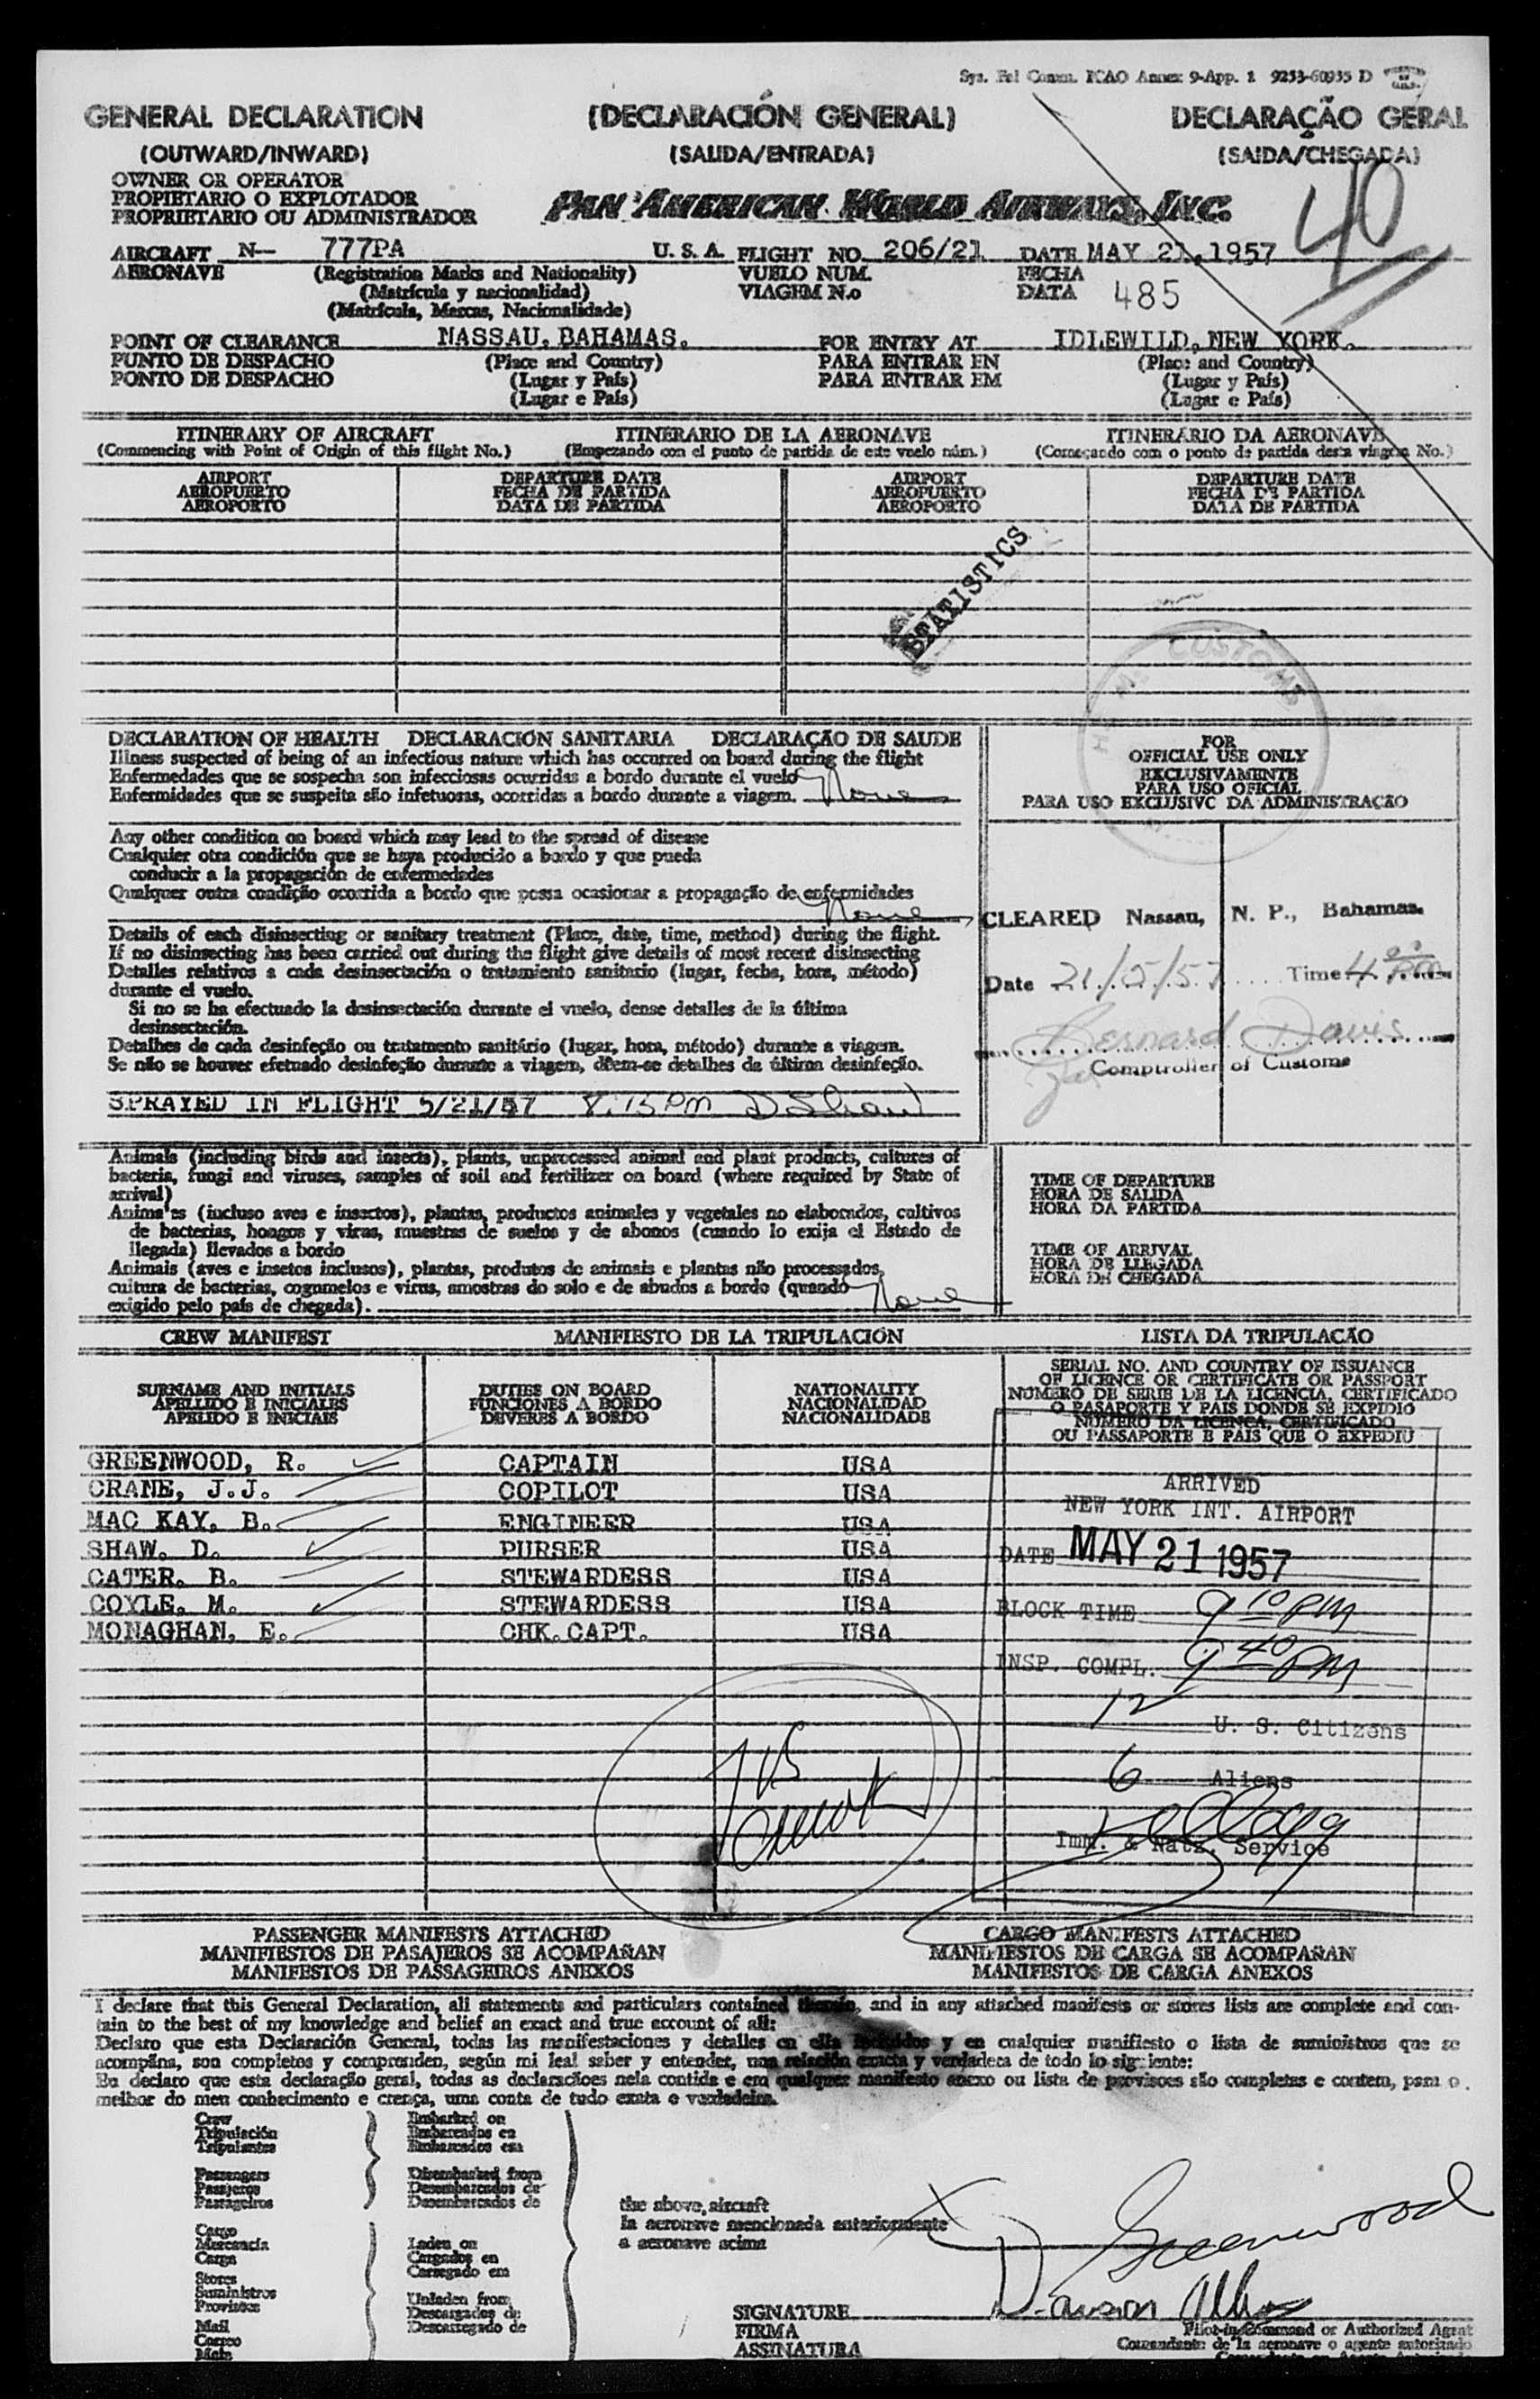 Sys. Fel Comm. ICAO Annex 9-App. 1 9253-60935 D
GENERAL DECLARATION (DECLARACIÓN GENERAL) DECLARAÇÃO GERAL
(OUTWARD/INWARD) (SALIDA/ENTRADA) (SAIDA/CHEGADA)
40
OWNER OR OPERATOR
PROPIETARIO O EXPLOTADOR
PROPRIETARIO OU ADMINISTRADOR
PAN AMERICAN WORLD AIRWAYS, INC.
AIRCRAFT N— 777PA U. S. A. FLIGHT NO. 206/21 DATE MAY 21, 1957
AERONAVE (Registration Marks and Nationality) VUELO NUM. FECHA
(Matrícula y nacionalidad) VIAGEM N.o DATA 485
(Matrícula, Marcas, Nacionalidade)
POINT OF CLEARANCE NASSAU, BAHAMAS. FOR ENTRY AT IDLEWILD, NEW YORK.
PUNTO DE DESPACHO (Place and Country) PARA ENTRAR EN (Place and Country)
PONTO DE DESPACHO (Lugar y País) PARA ENTRAR EM (Lugar y País)
(Lugar e País) (Lugar e País)
ITINERARY OF AIRCRAFT ITINERARIO DE LA AERONAVE ITINERÁRIO DA AERONAVE
(Commencing with Point of Origin of this flight No.) (Empezando con el punto de partida de este vuelo núm.) (Começando com o ponto de partida desta viagem No.)
AIRPORT DEPARTURE DATE AIRPORT DEPARTURE DATE
AEROPUERTO FECHA DE PARTIDA AEROPUERTO FECHA DE PARTIDA
AEROPORTO DATA DE PARTIDA AEROPORTO DATA DE PARTIDA
STATISTICS
CUSTOMS
DECLARATION OF HEALTH DECLARACIÓN SANITARIA DECLARAÇÃO DE SAUDE
Illness suspected of being of an infectious nature which has occurred on board during the flight
Enfermedades que se sospecha son infecciosas ocurridas a bordo durante el vuelo
Enfermidades que se suspeita são infetuosas, ocorridas a bordo durante a viagem. None
FOR
OFFICIAL USE ONLY
EXCLUSIVAMENTE
PARA USO OFICIAL
PARA USO EXCLUSIVO DA ADMINISTRACÃO
Any other condition on board which may lead to the spread of disease
Cualquier otra condición que se haya producido a bordo y que pueda
conducir a la propagación de enfermedades
Qualquer outra condição ocorrida a bordo que possa ocasionar a propagação de enfermidades
None
CLEARED Nassau, N. P., Bahamas.
Date 21/5/57 Time 4 00 Pm
Bernard Davis
for Comptroller of Customs
Details of each disinsecting or sanitary treatment (Place, date, time, method) during the flight.
If no disinsecting has been carried out during the flight give details of most recent disinsecting
Detalles relativos a cada desinsectación o tratamiento sanitario (lugar, fecha, hora, método)
durante el vuelo.
Si no se ha efectuado la desinsectación durante el vuelo, dense detalles de la última
desinsectación.
Detalhes de cada desinfeção ou tratamento sanitário (lugar, hora, método) durante a viagem.
Se não se houver efetuado desinfeção durante a viagem, dêem-se detalhes da última desinfeção.
SPRAYED IN FLIGHT 5/21/57 8:15 PM D Shaw
Animals (including birds and insects), plants, unprocessed animal and plant products, cultures of
bacteria, fungi and viruses, samples of soil and fertilizer on board (where required by State of
arrival)
Animales (incluso aves e insectos), plantas, productos animales y vegetales no elaborados, cultivos
de bacterias, hongos y virus, muestras de suelos y de abonos (cuando lo exija el Estado de
llegada) llevados a bordo
Animais (aves e insetos inclusos), plantas, produtos de animais e plantas não processados,
cultura de bacterias, cogumelos e virus, amostras do solo e de abudos a bordo (quando
exigido pelo país de chegada). None
TIME OF DEPARTURE
HORA DE SALIDA
HORA DA PARTIDA
TIME OF ARRIVAL
HORA DE LLEGADA
HORA DE CHEGADA
CREW MANIFEST MANIFIESTO DE LA TRIPULACIÓN LISTA DA TRIPULACÃO
SURNAME AND INITIALS DUTIES ON BOARD NATIONALITY
APELLIDO E INICIALES FUNCIONES A BORDO NACIONALIDAD
APELIDO E INICIAIS DEVERES A BORDO NACIONALIDADE
SERIAL NO. AND COUNTRY OF ISSUANCE
OF LICENCE OR CERTIFICATE OR PASSPORT
NÚMERO DE SERIE DE LA LICENCIA, CERTIFICADO
O PASAPORTE Y PAIS DONDE SE EXPIDIÓ
NÚMERO DA LICENCA, CERTIFICADO
OU PASSAPORTE E PAIS QUE O EXPEDIU
GREENWOOD, R. CAPTAIN USA
CRANE, J.J. COPILOT USA
MAC KAY, B. ENGINEER USA
SHAW, D. PURSER USA
CATER, B. STEWARDESS USA
COYLE, M. STEWARDESS USA
MONAGHAN, E. CHK.CAPT. USA
ARRIVED
NEW YORK INT. AIRPORT
DATE MAY 21 1957
BLOCK TIME 9 10 PM
INSP. COMPL. 9 40 PM
12 U. S. Citizens
6 Aliens
Kellogg
Imm. & Natz. Service
PASSENGER MANIFESTS ATTACHED CARGO MANIFESTS ATTACHED
MANIFIESTOS DE PASAJEROS SE ACOMPAÑAN MANIFIESTOS DE CARGA SE ACOMPAÑAN
MANIFESTOS DE PASSAGEIROS ANEXOS MANIFESTOS DE CARGA ANEXOS
I declare that this General Declaration, all statements and particulars contained therein, and in any attached manifests or stores lists are complete and con-
tain to the best of my knowledge and belief an exact and true account of all:
Declaro que esta Declaración General, todas las manifestaciones y detalles en ella incluidos y en cualquier manifiesto o lista de suministros que se
acompãna, son completos y comprenden, según mi leal saber y entender, una relación exacta y verdadera de todo lo siguiente:
Eu declaro que esta declaração geral, todas as declaracões nela contida e em qualquer manifesto anexo ou lista de provisoes são completas e contem, para o
melhor do meu conhecimento e crença, uma conta de tudo exata e verdadeira.
Crew Embarked on
Tripulación Embarcados en
Tripulantes Embarcados em
Passengers Disembarked from
Pasajeros Desembarcados de
Passageiros Desembarcados de
Cargo
Mercancía Laden on
Carga Cargados en
Stores Carregado em
Suministros
Provisões Unladen from
Mail Descargados de
Correo Descarregado de
Mala
the above, aircraft
la aeronave mencionada anteriormente
a aeronave acima
Greenwood
SIGNATURE
FIRMA
ASSINATURA
Pilot-in-Command or Authorized Agent
Comandante de la aeronave o agente autorizado